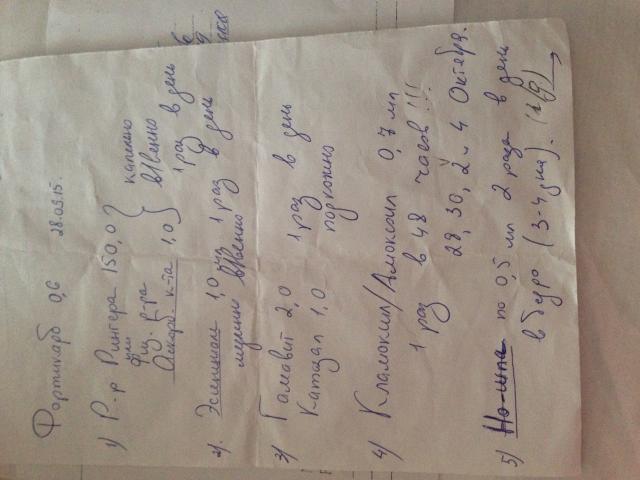 Фортикарб 0,6 28.09.15.
1) Р-р Рингера 150,0 } капельно
или
физ. р-ра в/венно
Аскорб. к-та 1,0 1 раз в день
2). Эссенциале 1,0 1 раз в день
медленно в/венно
3) Гамавит 2,0 1 раз в день
Катозал 1,0 подкожно
4) Кламоксил/Амоксоил 0,7 мл
1 раз в 48 часов!!!
28, 30, 2 и 4 Октября.
5) Но-шпа по 0,5 мл 2 раза в день
в бедро (3-4 дня).